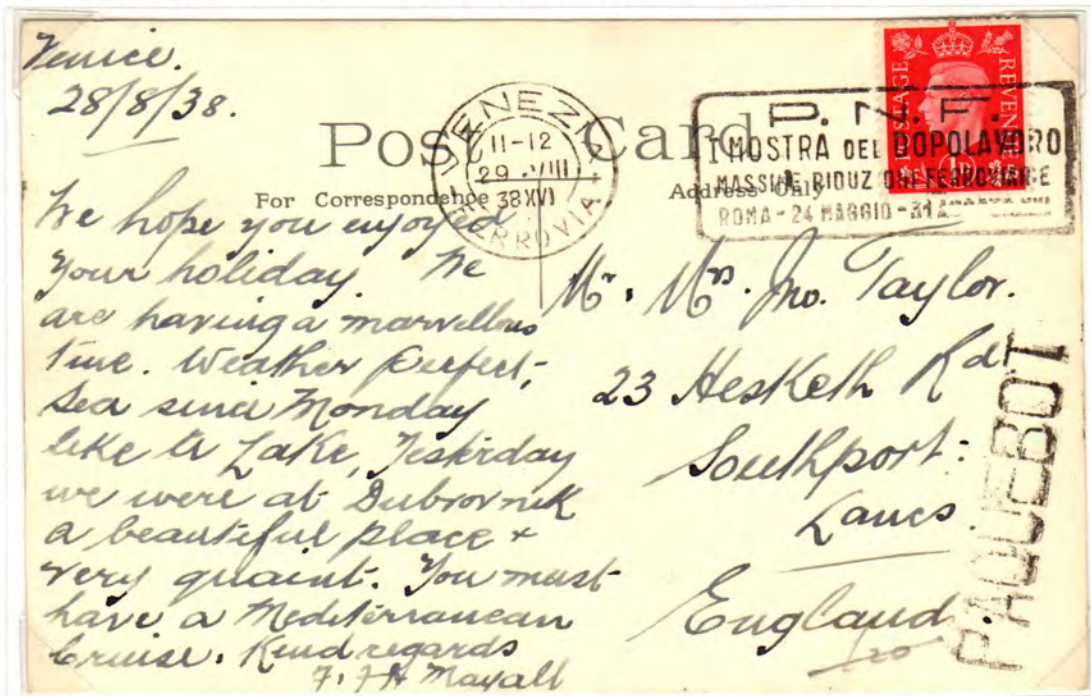 Venice.
28/8/38.
Post Card
For Correspondence
Address Only
VENEZIA
11-12
29.VIII
38 XVI
FERROVIA
P.N.F.
I MOSTRA DEL DOPOLAVORO
MASSIME RIDUZIONI FERROVIARIE
ROMA-24 MAGGIO-31
POSTAGE
REVENUE
1D
We hope you enjoyed
your holiday. We
are having a marvellous
time. Weather perfect,
Sea since Monday
like a Lake, Yesterday
we were at Dubrovnik
a beautiful place +
very quaint. You must
have a Mediterranean
Cruise. Kind regards
Mr. Mrs. Jno. Taylor.
23 Hesketh Rd
Southport.
Lancs.
England
PAQUEBOT